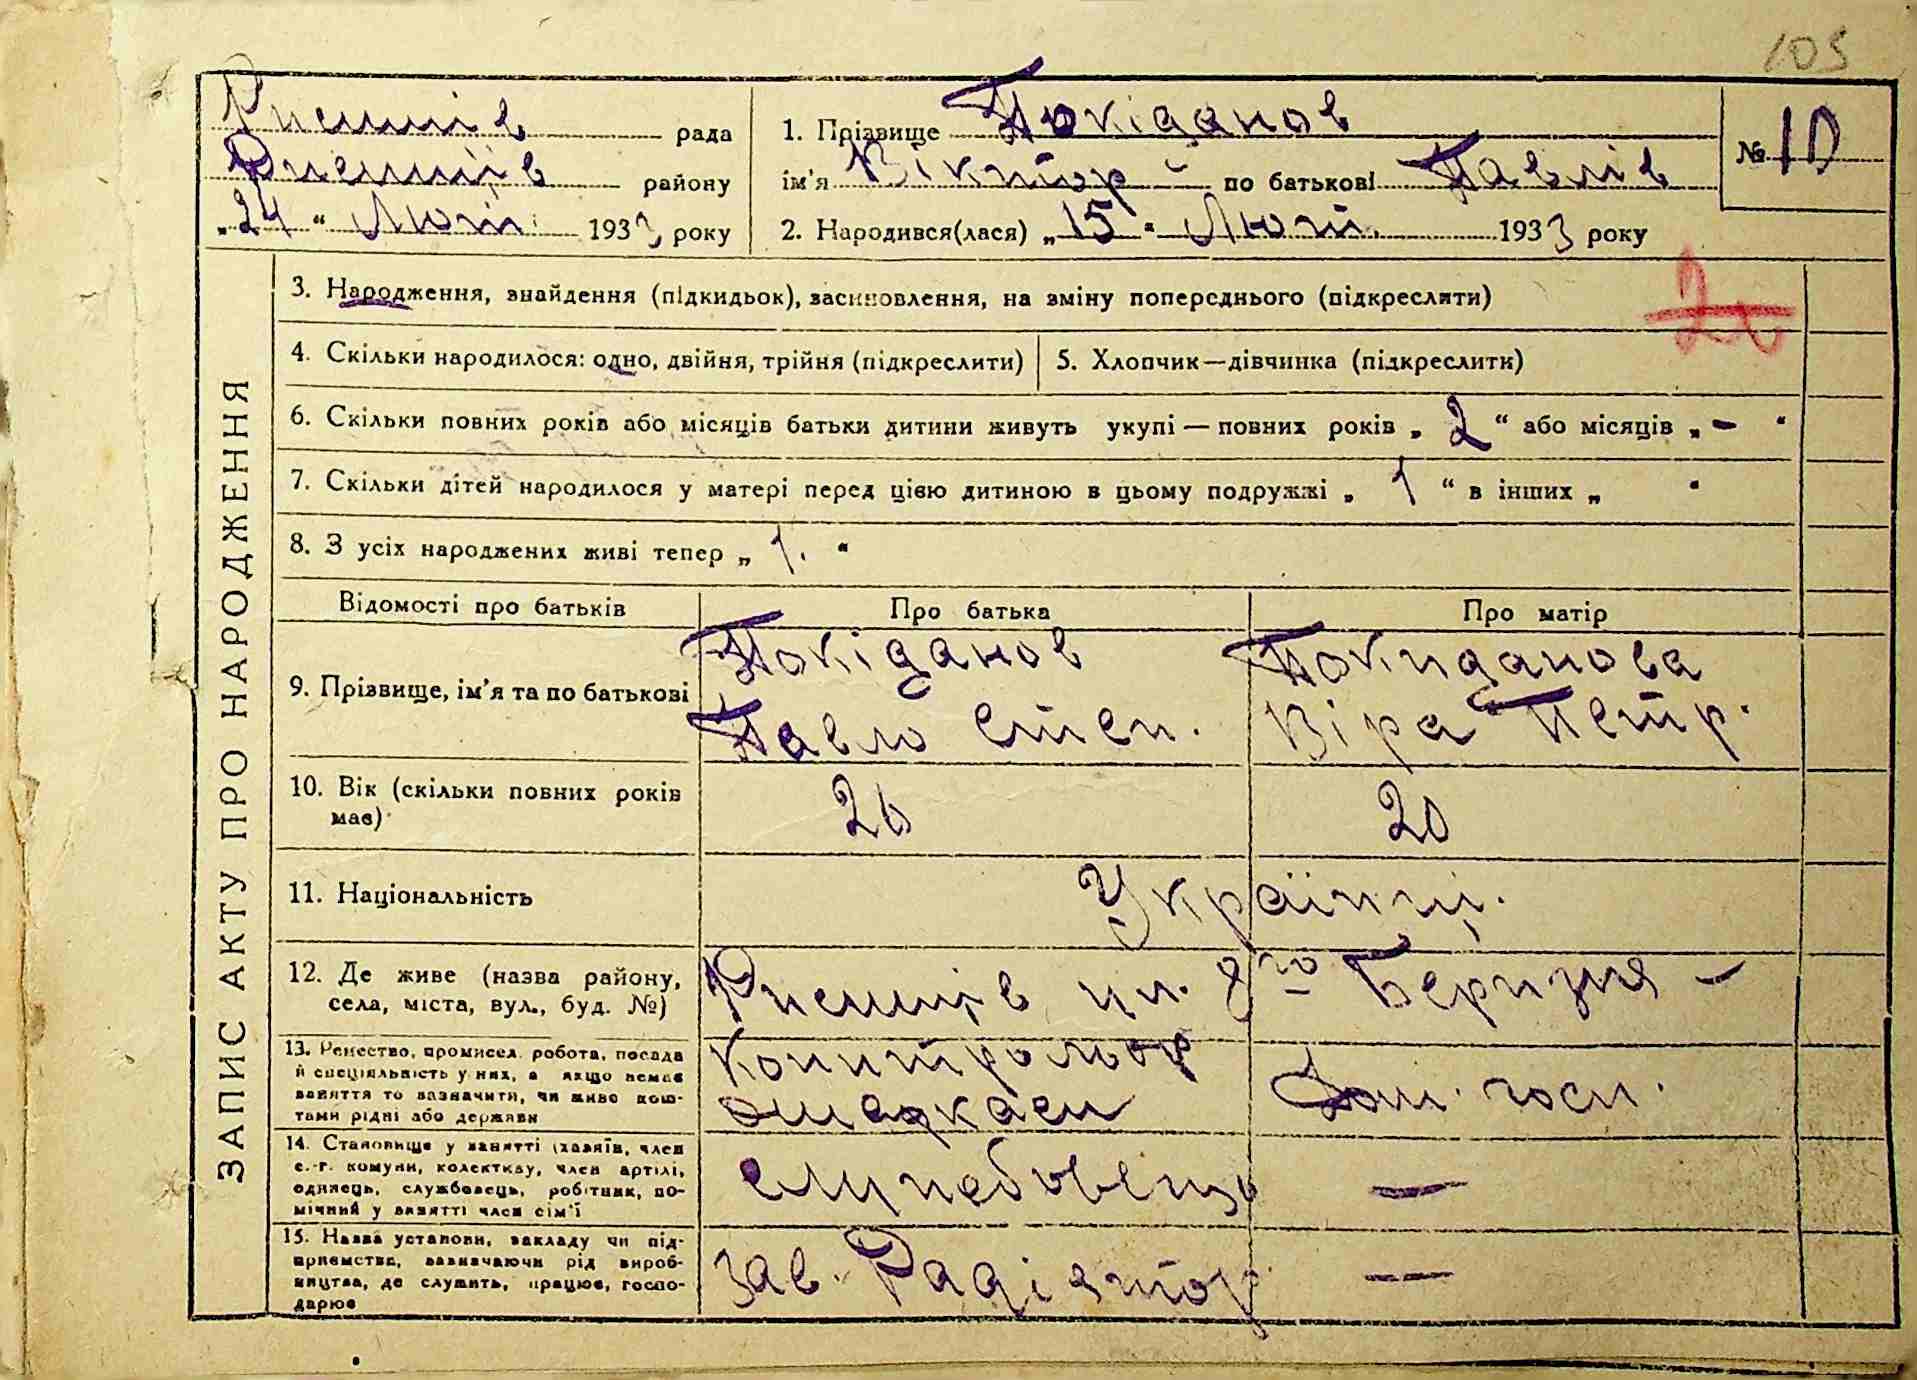 103
Ржищів рада
Ржищів району
„24“ Лют. 1933 року
1. Прізвище Покіданов
ім'я Віктор по батькові Павлів
2. Народився(лася) „15“ Лют. 1933 року
№ 10
ЗАПИС АКТУ ПРО НАРОДЖЕННЯ
3. Народження, знайдення (підкидьок), засиновлення, на зміну попереднього (підкреслити)
4. Скільки народилося: одно, двійня, трійня (підкреслити)
5. Хлопчик—дівчинка (підкреслити)
6. Скільки повних років або місяців батьки дитини живуть укупі — повних років „ 2 “ або місяців „ - “
7. Скільки дітей народилося у матері перед цією дитиною в цьому подружжі „ 1 “ в інших „ “
8. З усіх народжених живі тепер „ 1. “
Відомості про батьків
Про батька
Про матір
9. Прізвище, ім'я та по батькові
Покіданов
Павло Степ.
Покиданова
Віра Петр.
10. Вік (скільки повних років
має)
26
20
11. Національність
Українці.
12. Де живе (назва району,
села, міста, вул., буд. №)
Ржищів ул. 8го Березня –
13. Ремество, промисел, робота, посада
й спеціяльність у них, а якщо немає
заняття то зазначити, чи живе кош-
тами рідні або держави
Контрольор
ощадкаси
Дом. госп.
14. Становище у занятті (хазяїн, член
с.-г. комуни, колективу, член артілі,
одинець, службовець, робітник, по-
мічний у занятті член сім'ї
службовець
—
15. Назва установи, закладу чи під-
приємства, зазначаючи рід вироб-
ництва, де служить, працює, госпо-
дарює
зав. Радіятор
—